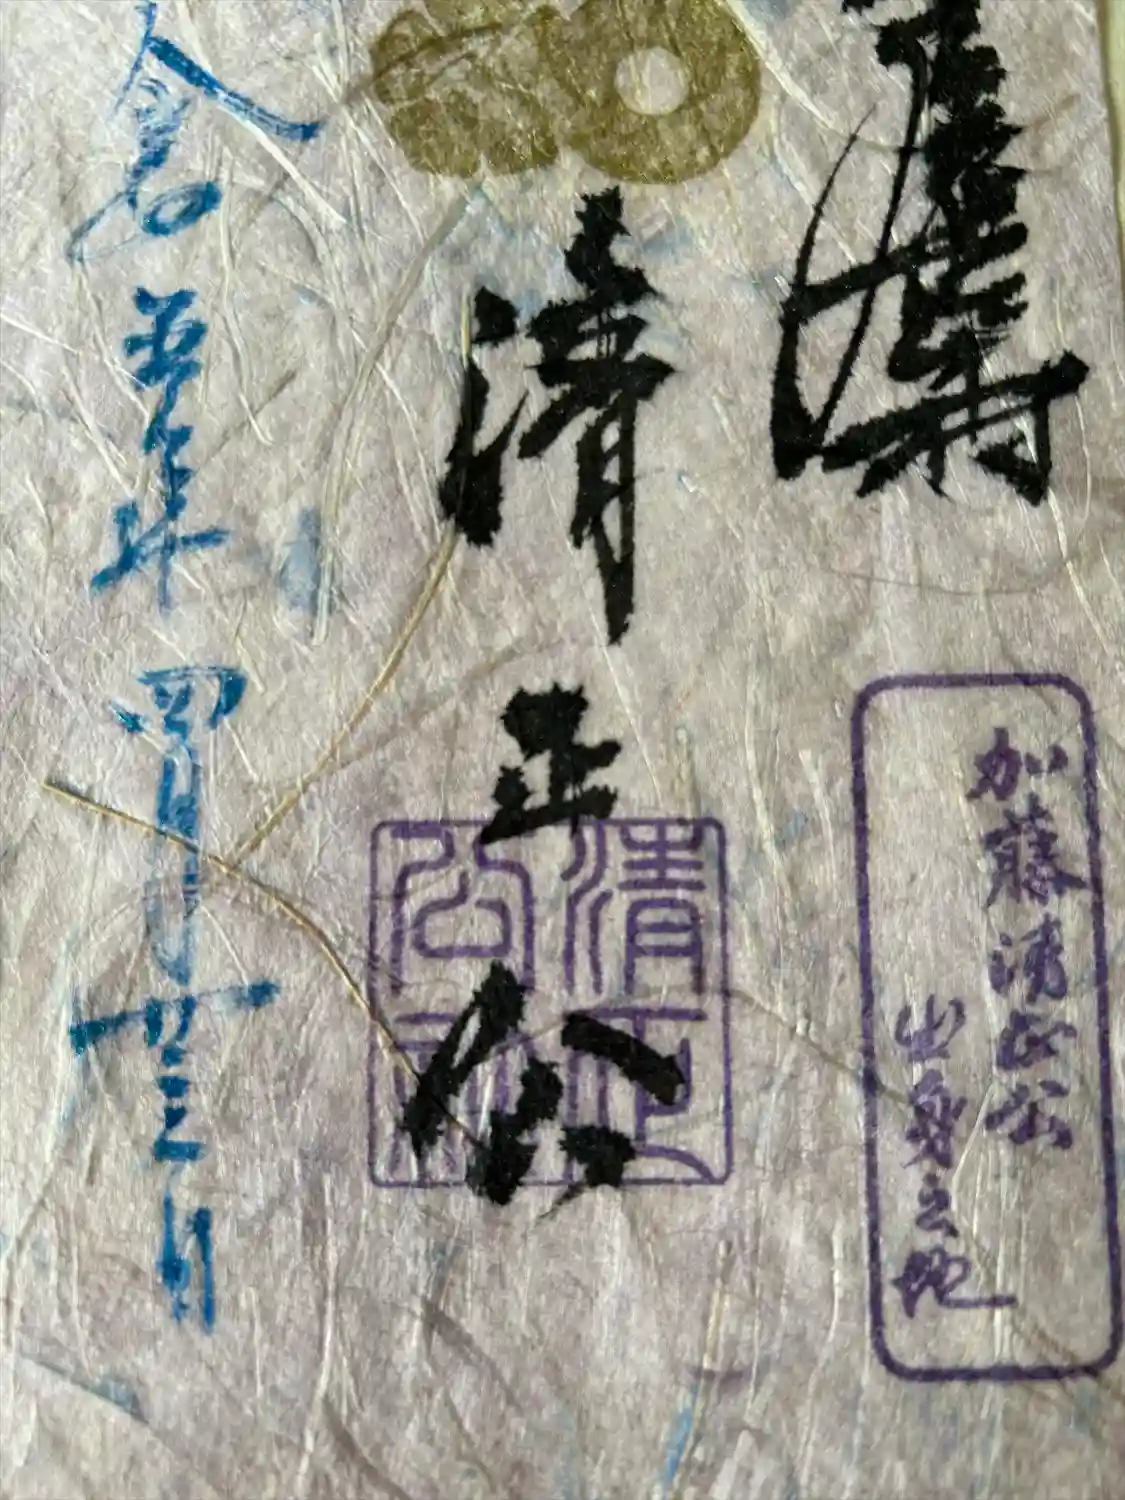 加藤清正公
出身之地
清正公
令和五年四月廿三日